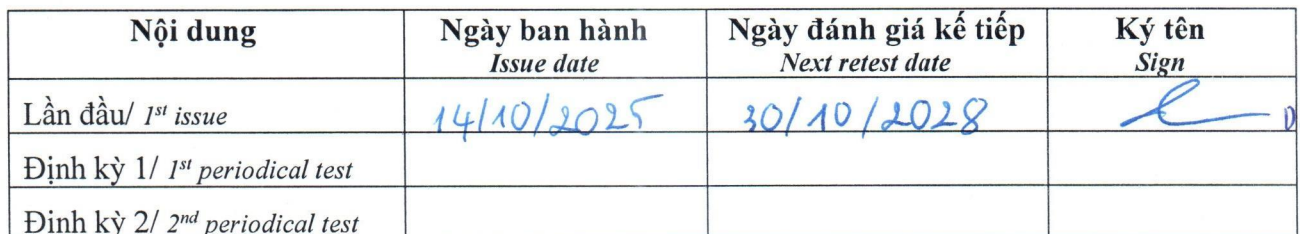 Nội dung
Ngày ban hành
Issue date
Ngày đánh giá kế tiếp
Next retest date
Ký tên
Sign
Lần đầu/ 1st issue
14/10/2025
30/10/2028
Định kỳ 1/ 1st periodical test
Định kỳ 2/ 2nd periodical test